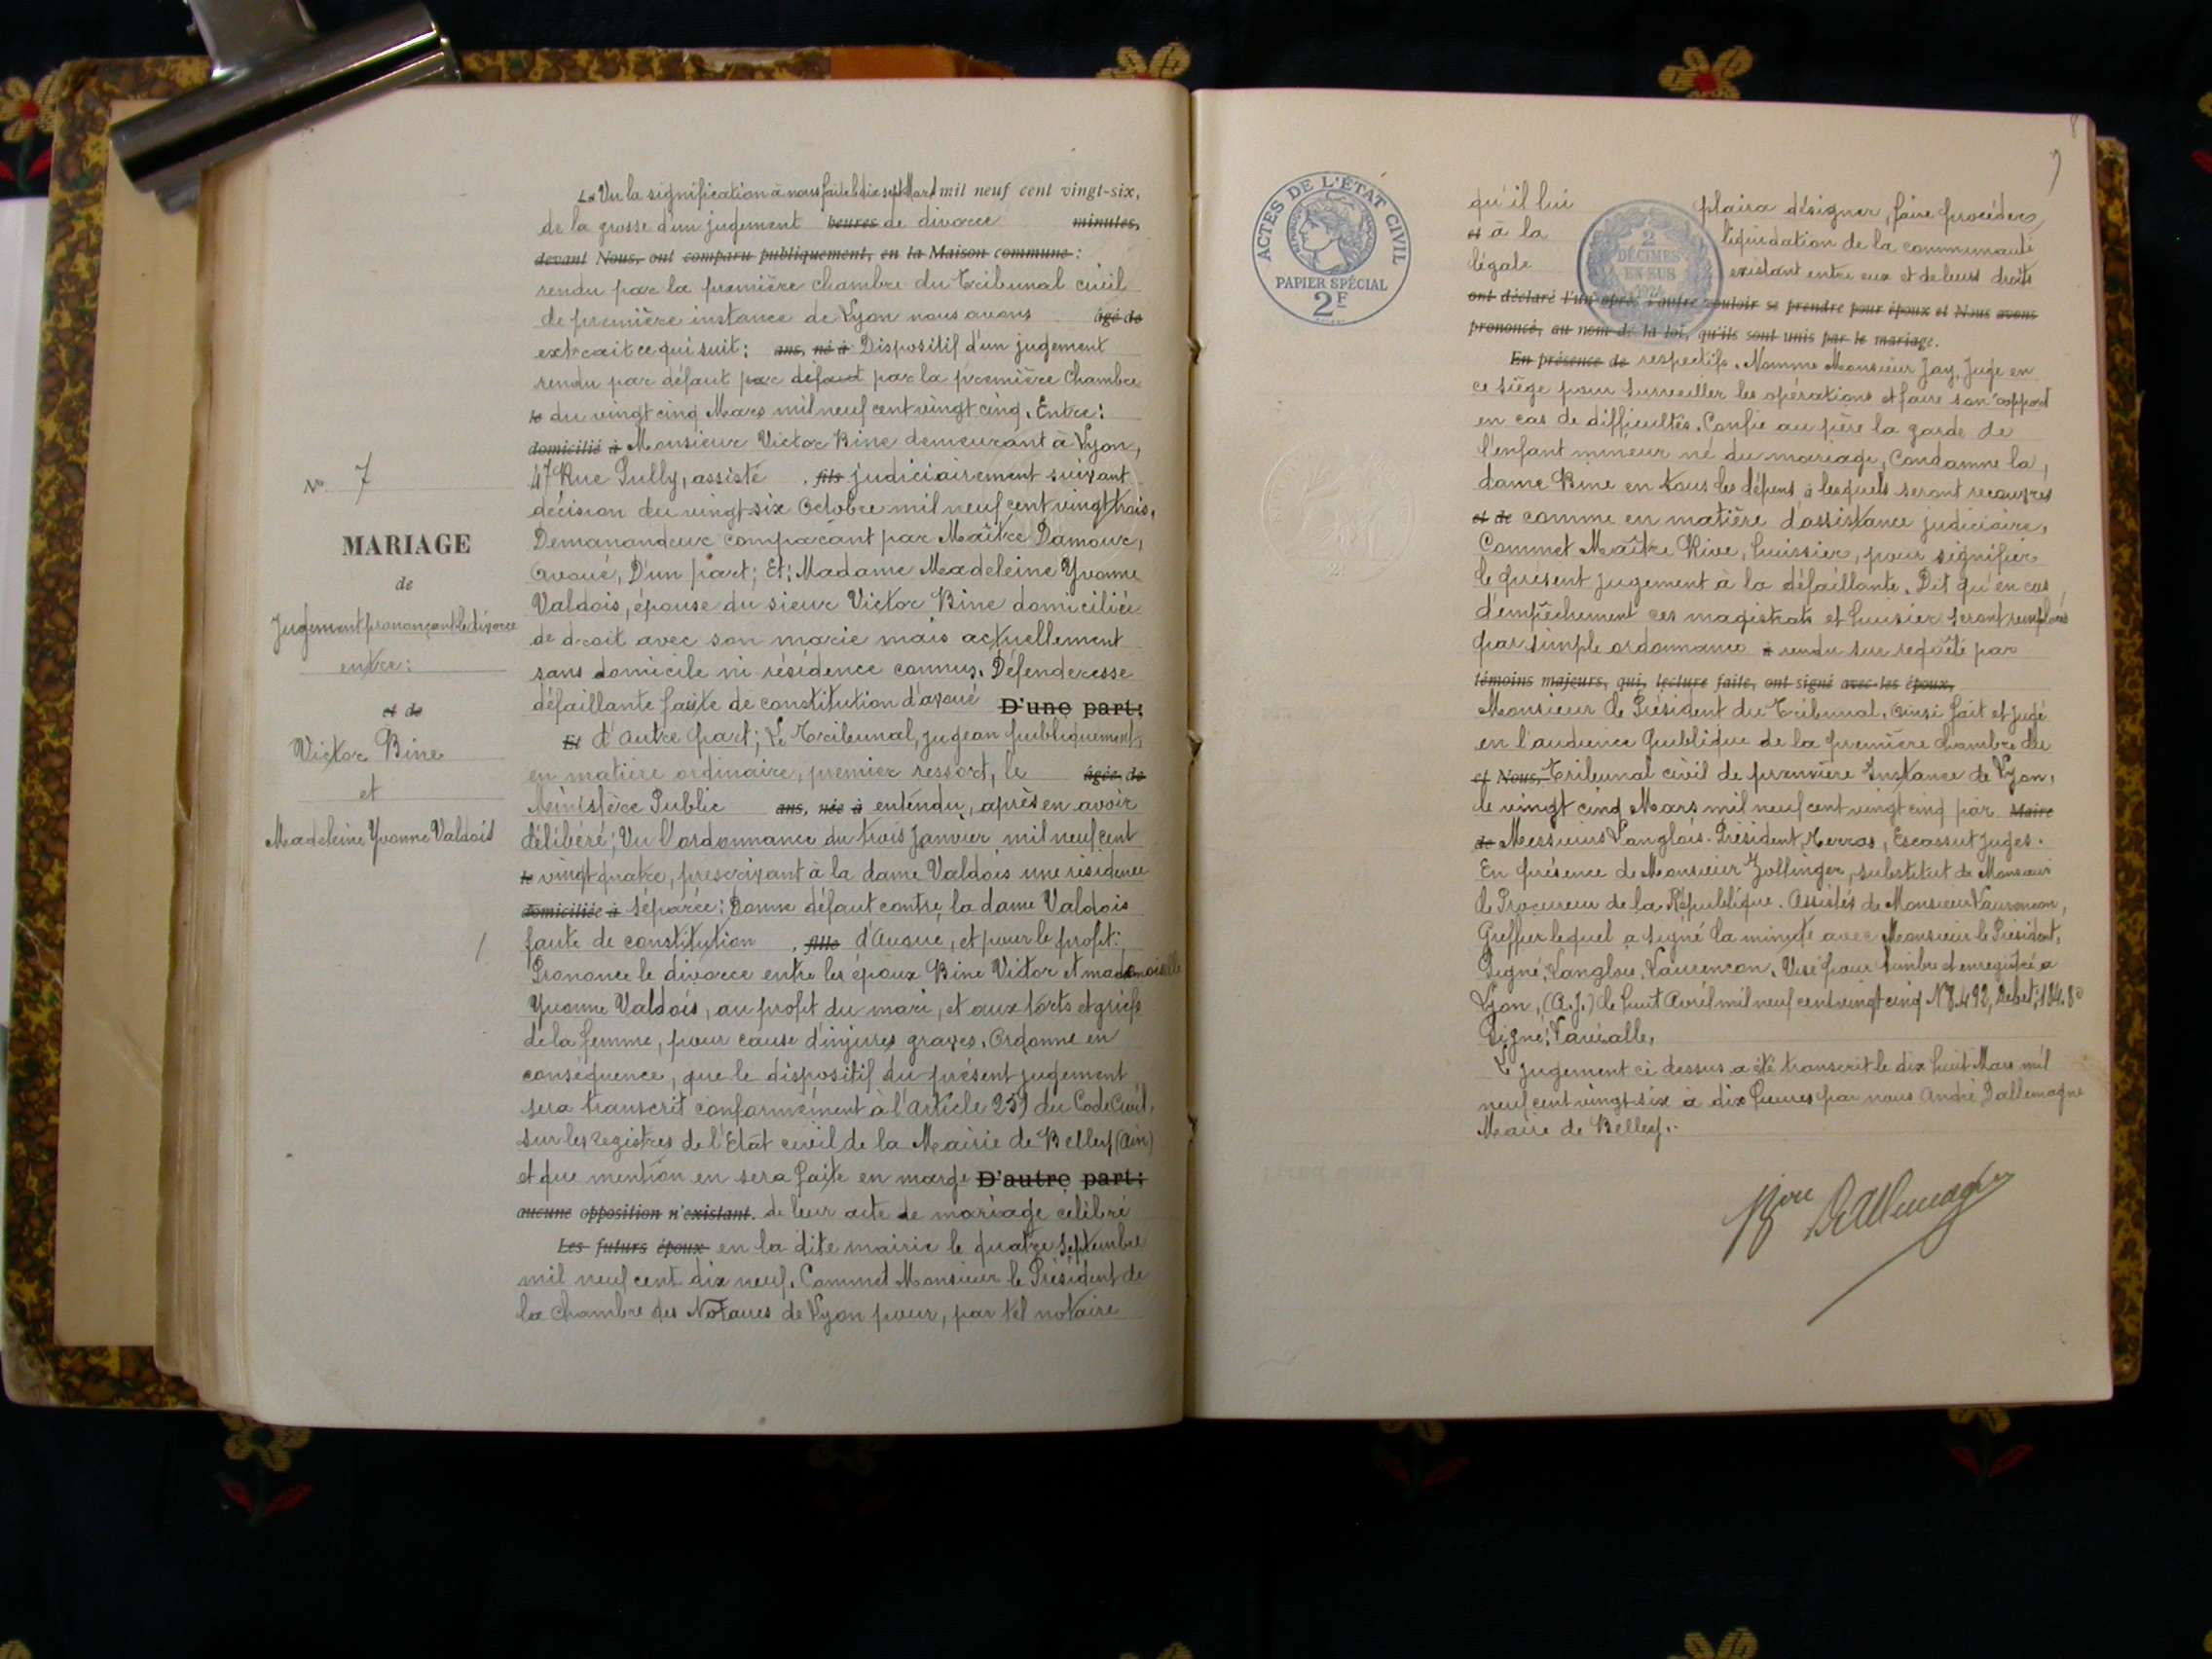 Le Vu la signification à nous faite le dix sept Mars mil neuf cent vingt-six,
de la grosse d'un jugement heures de divorce minutes,
devant Nous, ont comparu publiquement, en la Maison commune :
rendu par la première chambre du Tribunal civil
de première instance de Lyon nous avons âgé de
extrait ce qui suit : ans, né à Dispositif d'un jugement
rendu par défaut par défaut par la première Chambre
le du vingt cinq Mars mil neuf cent vingt cinq. Entre :
domicilié à Monsieur Victor Bine demeurant à Lyon,
47 Rue Sully, assisté , fils judiciairement suivant
décision du vingt-six Octobre mil neuf cent vingt trois.
Demanandeur comparant par Maître Damour,
avoué, D'un part; Et; Madame Madeleine Yvonne
Valdois, épouse du sieur Victor Bine domiciliée
de droit avec son marie mais actuellement
sans domicile ni résidence connus. Défenderesse
défaillante faute de constitution d'avoué D'une part;
Et d'autre part; Le Tribunal, jugean publiquement,
en matière ordinaire, premier ressort, le âgée de
Ministère Public ans, née à entendu, après en avoir
délibéré; Vu l'ordonnance du trois Janvier mil neuf cent
le vingt quatre, prescrivant à la dame Valdois une résidence
domiciliée à séparée: Donne défaut contre la dame Valdois
faute de constitution , fille d'Avoué, et pour le profit:
Prononce le divorce entre les époux Bine Victor et mademoiselle
Yvonne Valdois, au profit du mari, et aux torts et griefs
de la femme, pour cause d'injures graves. Ordonne en
conséquence, que le dispositif du présent jugement
sera transcrit conformément à l'article 251 du Code Civil,
sur les registres de l'Etat civil de la Mairie de Belley (Ain)
et que mention en sera faite en marge D'autre part;
aucune opposition n'existant. de leur acte de mariage célébré
Les futurs époux en la dite mairie le quatre Septembre
mil neuf cent dix neuf. Commet Monsieur le Président de
la Chambre des Notaires de Lyon pour, par tel notaire
N° 7
MARIAGE
de
Jugement prononçant le divorce
entre :
et de
Victor Bine
et
Madeleine Yvonne Valdois
ACTES DE L'ÉTAT CIVIL
PAPIER SPÉCIAL
2F
2
DÉCIMES
EN SUS
1924
qu'il lui plaira désigner, faire procéder
et à la liquidation de la communauté
légale existant entre eux et de leurs droits
ont déclaré l'un après l'autre vouloir se prendre pour époux et Nous avons
prononcé, au nom de la loi, qu'ils sont unis par le mariage.
En présence de respectifs. Nomme Monsieur Jay, Juge en
ce siège pour surveiller les opérations et faire son rapport
en cas de difficultés. Confie au père la garde de
l'enfant mineur né du mariage, Condamne la
dame Bine en tous les dépens à lesquels seront recouvrés
et de comme en matière d'assistance judiciaire.
Commet Maître Rive, huissier, pour signifier
le présent jugement à la défaillante. Dit qu'en cas
d'empêchement ces magistrats et huissier seront remplacés
par simple ordonnance à rendu sur requête par
témoins majeurs, qui, lecture faite, ont signé avec les époux,
Monsieur le Président du Tribunal, ainsi fait et jugé
en l'audience Publique de la première chambre du
et Nous, Tribunal civil de première Instance de Lyon,
le vingt cinq Mars mil neuf cent vingt cinq par Maire
de Messieurs Langlois. Président, Terras, Escassut Juges.
En présence de Monsieur Zolfinger, substitut de Monsieur
le Procureur de la République. Assistés de Monsieur Laurençon,
Greffier lequel a signé la minute avec Monsieur le Président,
Signé, Langlois, Laurençon. Visé pour timbre et enregistré a
Lyon, (A.J.) le huit Avril mil neuf cent vingt cinq N° 8.492, Debet; 184.80
Signé;
Le jugement ci dessus a été transcrit le dix huit Mars mil
neuf cent vingt-six à dix heures par nous André Dallemagne
Maire de Belley.
Dallemagne